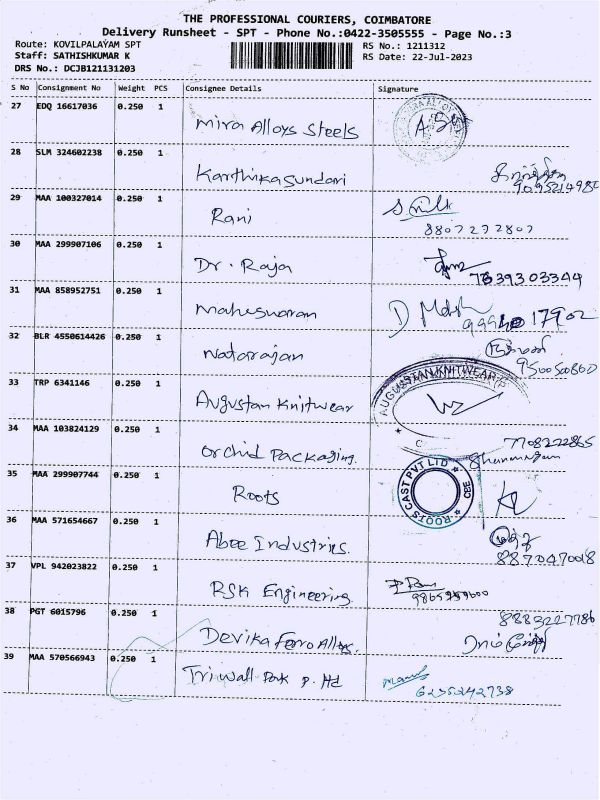 THE PROFESSIONAL COURIERS, COIMBATORE
Delivery Runsheet - SPT - Phone No.:0422-3505555 - Page No.:3
Route: KOVILPALAYAM SPT RS No.: 1211312
Staff: SATHISHKUMAR K RS Date: 22-Jul-2023
DRS No.: DCJB121131203
S No Consignment No Weight PCS Consignee Details Signature
27 EDQ 16617036 0.250 1
Mira Alloys Steels
28 SLM 324602238 0.250 1
Karthikasundari
29 MAA 100327014 0.250 1
Rani
8807272807
30 MAA 299907106 0.250 1
Dr. Raja
7639303344
31 MAA 858952751 0.250 1
Maheswaran
32 BLR 4550614426 0.250 1
Natarajan
33 TRP 6341146 0.250 1
Augustan Knitwear
AUGUSTAN KNITWEAR
34 MAA 103824129 0.250 1
7708222865
Orchid Packaging.
Shanmugam
35 MAA 299907744 0.250 1
Roots
ROOTS CAST PVT LTD CBE
36 MAA 571654667 0.250 1
Abee Industries.
8870470018
37 VPL 942023822 0.250 1
RSK Engineering
38 PGT 6015796 0.250 1
8883227786
Devika Ferro Alloys.
39 MAA 570566943 0.250 1
Tri wall Pak p. ltd
6235242738